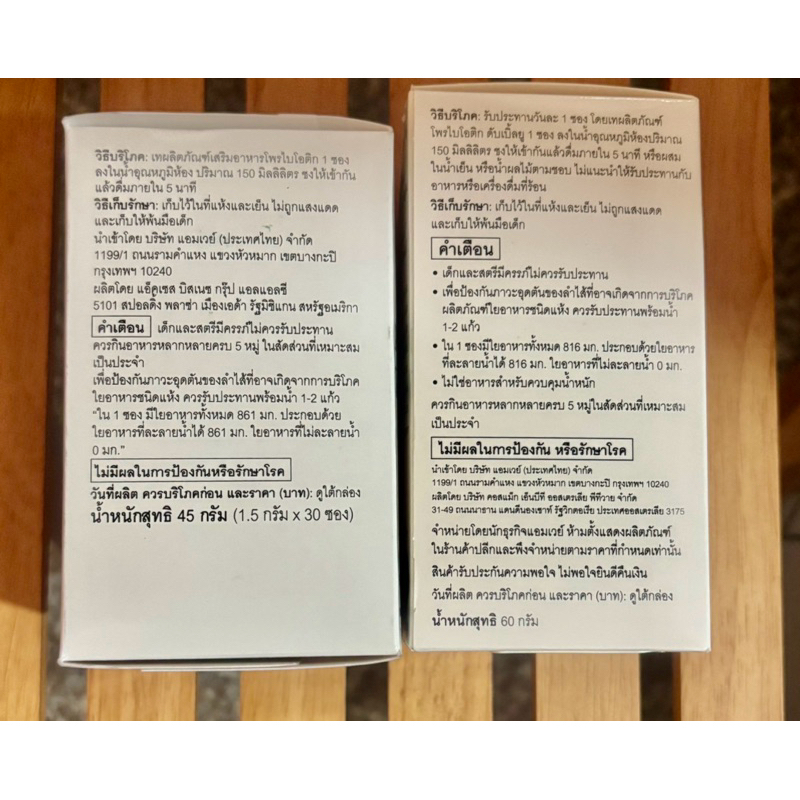 วิธีบริโภค: เทผลิตภัณฑ์เสริมอาหารโพรไบโอติก 1 ซอง
ลงในน้ำอุณหภูมิห้อง ปริมาณ 150 มิลลิลิตร ชงให้เข้ากัน
แล้วดื่มภายใน 5 นาที
วิธีเก็บรักษา: เก็บไว้ในที่แห้งและเย็น ไม่ถูกแสงแดด
และเก็บให้พ้นมือเด็ก
นำเข้าโดย บริษัท แอมเวย์ (ประเทศไทย) จำกัด
1199/1 ถนนรามคำแหง แขวงหัวหมาก เขตบางกะปิ
กรุงเทพฯ 10240
ผลิตโดย แอ็คเซส บิสเนซ กรุ๊ป แอลแอลซี
5101 สปอลดิ้ง พลาซ่า เมืองเอด้า รัฐมิชิแกน สหรัฐอเมริกา
คำเตือน เด็กและสตรีมีครรภ์ไม่ควรรับประทาน
ควรกินอาหารหลากหลายครบ 5 หมู่ ในสัดส่วนที่เหมาะสม
เป็นประจำ
เพื่อป้องกันภาวะอุดตันของลำไส้ที่อาจเกิดจากการบริโภค
ใยอาหารชนิดแห้ง ควรรับประทานพร้อมน้ำ 1-2 แก้ว
"ใน 1 ซอง มีใยอาหารทั้งหมด 861 มก. ประกอบด้วย
ใยอาหารที่ละลายน้ำได้ 861 มก. ใยอาหารที่ไม่ละลายน้ำ
0 มก."
ไม่มีผลในการป้องกันหรือรักษาโรค
วันที่ผลิต ควรบริโภคก่อน และราคา (บาท): ดูใต้กล่อง
น้ำหนักสุทธิ 45 กรัม (1.5 กรัม x 30 ซอง)
วิธีบริโภค: รับประทานวันละ 1 ซอง โดยเทผลิตภัณฑ์
โพรไบโอติก ดับเบิ้ลยู 1 ซอง ลงในน้ำอุณหภูมิห้องปริมาณ
150 มิลลิลิตร ชงให้เข้ากันแล้วดื่มภายใน 5 นาที หรือผสม
ในน้ำเย็น หรือน้ำผลไม้ตามชอบ ไม่แนะนำให้รับประทานกับ
อาหารหรือเครื่องดื่มที่ร้อน
วิธีเก็บรักษา: เก็บไว้ในที่แห้งและเย็น ไม่ถูกแสงแดด
และเก็บให้พ้นมือเด็ก
คำเตือน
• เด็กและสตรีมีครรภ์ไม่ควรรับประทาน
• เพื่อป้องกันภาวะอุดตันของลำไส้ที่อาจเกิดจากการบริโภค
ผลิตภัณฑ์ใยอาหารชนิดแห้ง ควรรับประทานพร้อมน้ำ
1-2 แก้ว
• ใน 1 ซองมีใยอาหารทั้งหมด 816 มก. ประกอบด้วยใยอาหาร
ที่ละลายน้ำได้ 816 มก. ใยอาหารที่ไม่ละลายน้ำ 0 มก.
• ไม่ใช่อาหารสำหรับควบคุมน้ำหนัก
ควรกินอาหารหลากหลายครบ 5 หมู่ในสัดส่วนที่เหมาะสม
เป็นประจำ
ไม่มีผลในการป้องกัน หรือรักษาโรค
นำเข้าโดย บริษัท แอมเวย์ (ประเทศไทย) จำกัด
1199/1 ถนนรามคำแหง แขวงหัวหมาก เขตบางกะปิ กรุงเทพฯ 10240
ผลิตโดย บริษัท คอสแม็ก เอ็นบีที ออสเตรเลีย พีทีวาย จำกัด
31-49 ถนนนาธาน แดนดีนองเซาท์ รัฐวิกตอเรีย ประเทศออสเตรเลีย 3175
จำหน่ายโดยนักธุรกิจแอมเวย์ ห้ามตั้งแสดงผลิตภัณฑ์
ในร้านค้าปลีกและพึงจำหน่ายตามราคาที่กำหนดเท่านั้น
สินค้ารับประกันความพอใจ ไม่พอใจยินดีคืนเงิน
วันที่ผลิต ควรบริโภคก่อน และราคา (บาท): ดูใต้กล่อง
น้ำหนักสุทธิ 60 กรัม